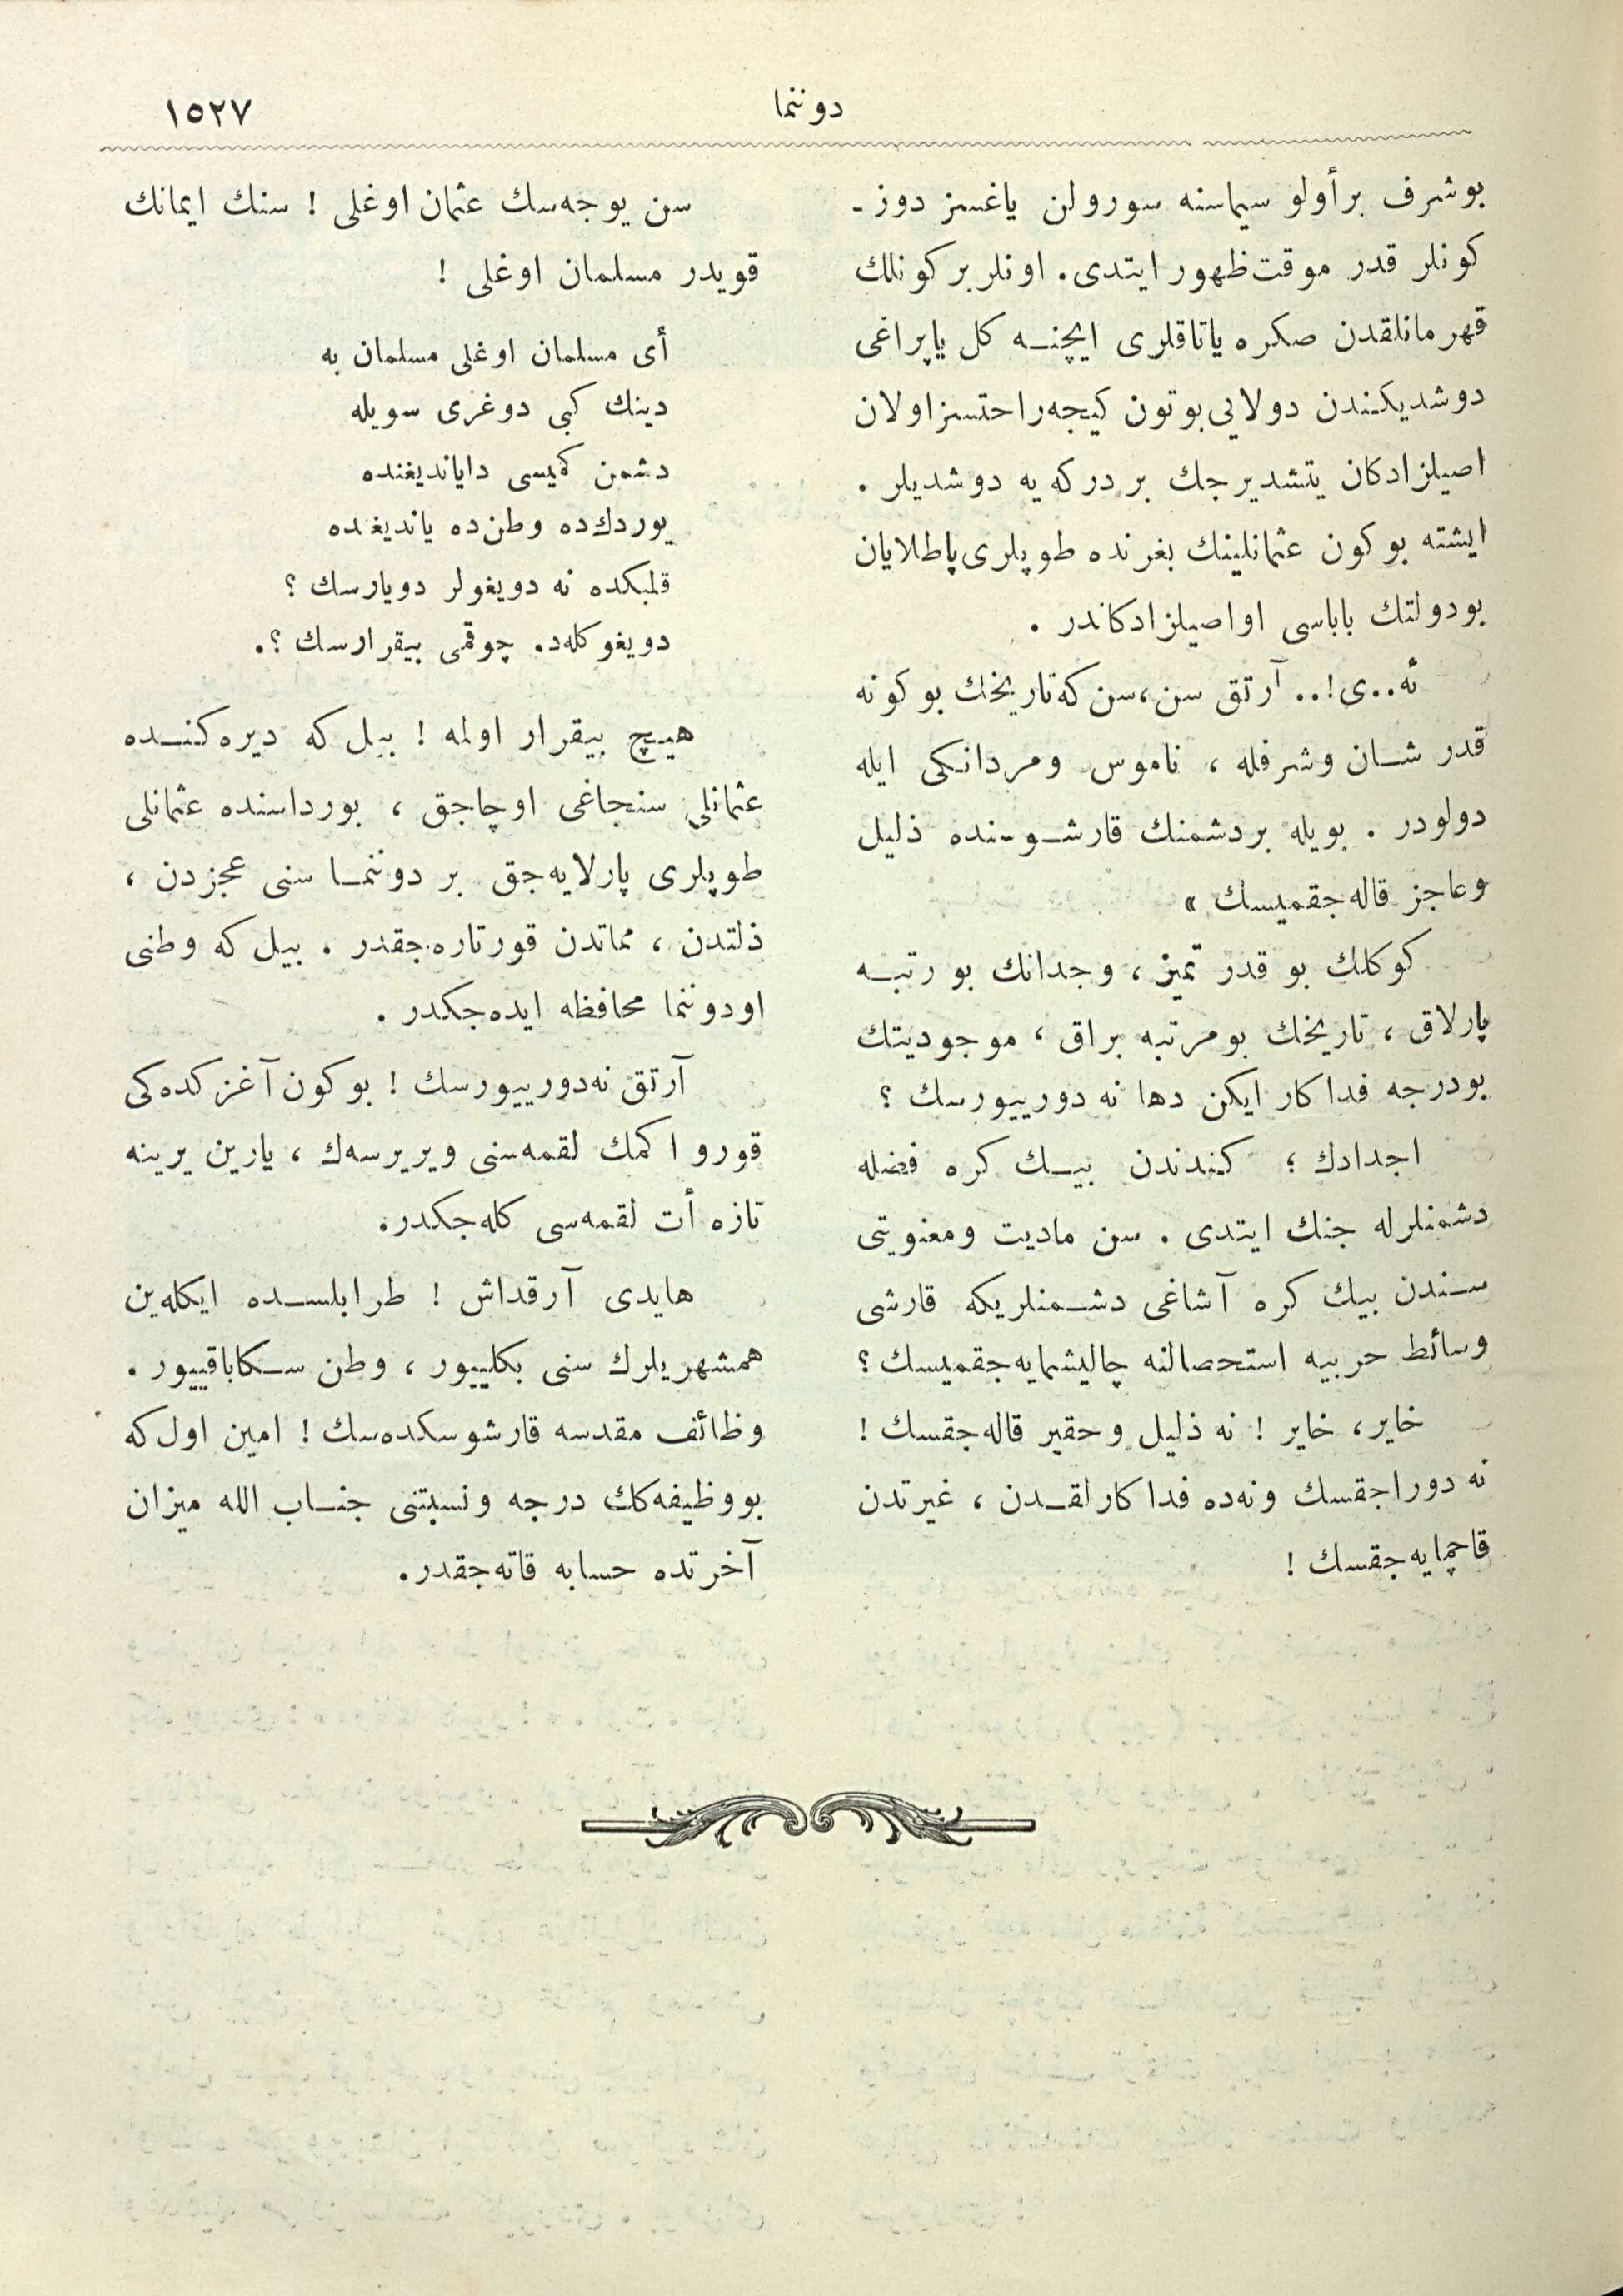 دوننما
١٥٢٧
بو شرف بر أولو سيماسنه سورولن ياغسز دوز-
كونلر قدر موقت ظهور ايتدى. اونلر بر كونلك
قهرمانلقدن صكره ياتاقلرى ايچنه كل ياپراغى
دوشديكندن دولايى بوتون كيجه راحتسز اولان
اصيلزادكان يتشديرجك بر دركه يه دوشديلر .
ايشته بو كون عثمانلينك بغرنده طوپلرى پاطلايان
بو دولتك باباسى او اصيلزادكاندر .
ئه..ى!.. آرتق سن، سن كه تاريخك بو كونه
قدر شان و شرفله ، ناموس و مردانكى ايله
دولودر . بويله بر دشمنك قارشوسنده ذليل
و عاجز قاله جقميسك »
كوكلك بو قدر تميز ، وجدانك بو رتبه
پارلاق ، تاريخك بو مرتبه براق ، موجوديتك
بو درجه فداكار ايكن دها نه دورييورسك ؟
اجدادك ؛ كندندن بيك كره فضله
دشمنلرله جنك ايتدى . سن ماديت و معنويتى
سندن بيك كره آشاغى دشمنلريكه قارشى
وسائط حربيه استحصالنه چاليشمايه جقميسك ؟
خاير، خاير ! نه ذليل و حقير قاله جقسك !
نه دوراجقسك و نه ده فداكارلقدن ، غيرتدن
قاچمايه جقسك !
سن يوجه سك عثمان اوغلى ! سنك ايمانك
قويدر مسلمان اوغلى !
أى مسلمان اوغلى مسلمان به
دينك كبى دوغرى سويله
دشمن كميسى دايانديغنده
يوردك ده وطن ده يانديغده
قلبكده نه دويغولر دويارسك ؟
دويغوكله د. چوقمى بيقرارسك ؟.
هيچ بيقرار اولمه ! بيل كه ديره كنده
عثمانلى سنجاغى اوچاجق ، بورداسنده عثمانلى
طوپلرى پارلايه جق بر دوننما سنى عجزدن ،
ذلتدن ، مماتدن قورتاره جقدر . بيل كه وطنى
او دوننما محافظه ايده جكدر .
آرتق نه دورييورسك ! بو كون آغزكده كى
قورو اكمك لقمه سنى ويريرسه ك ، يارين يرينه
تازه أت لقمه سى كله جكدر.
هايدى آرقداش ! طرابلسده ايكله ين
همشهريلرك سنى بكلييور ، وطن سكا باقييور .
وظائف مقدسه قارشوسكده سك ! امين اول كه
بو وظيفه كك درجه و نسبتنى جناب الله ميزان
آخرتده حسابه قاته جقدر.